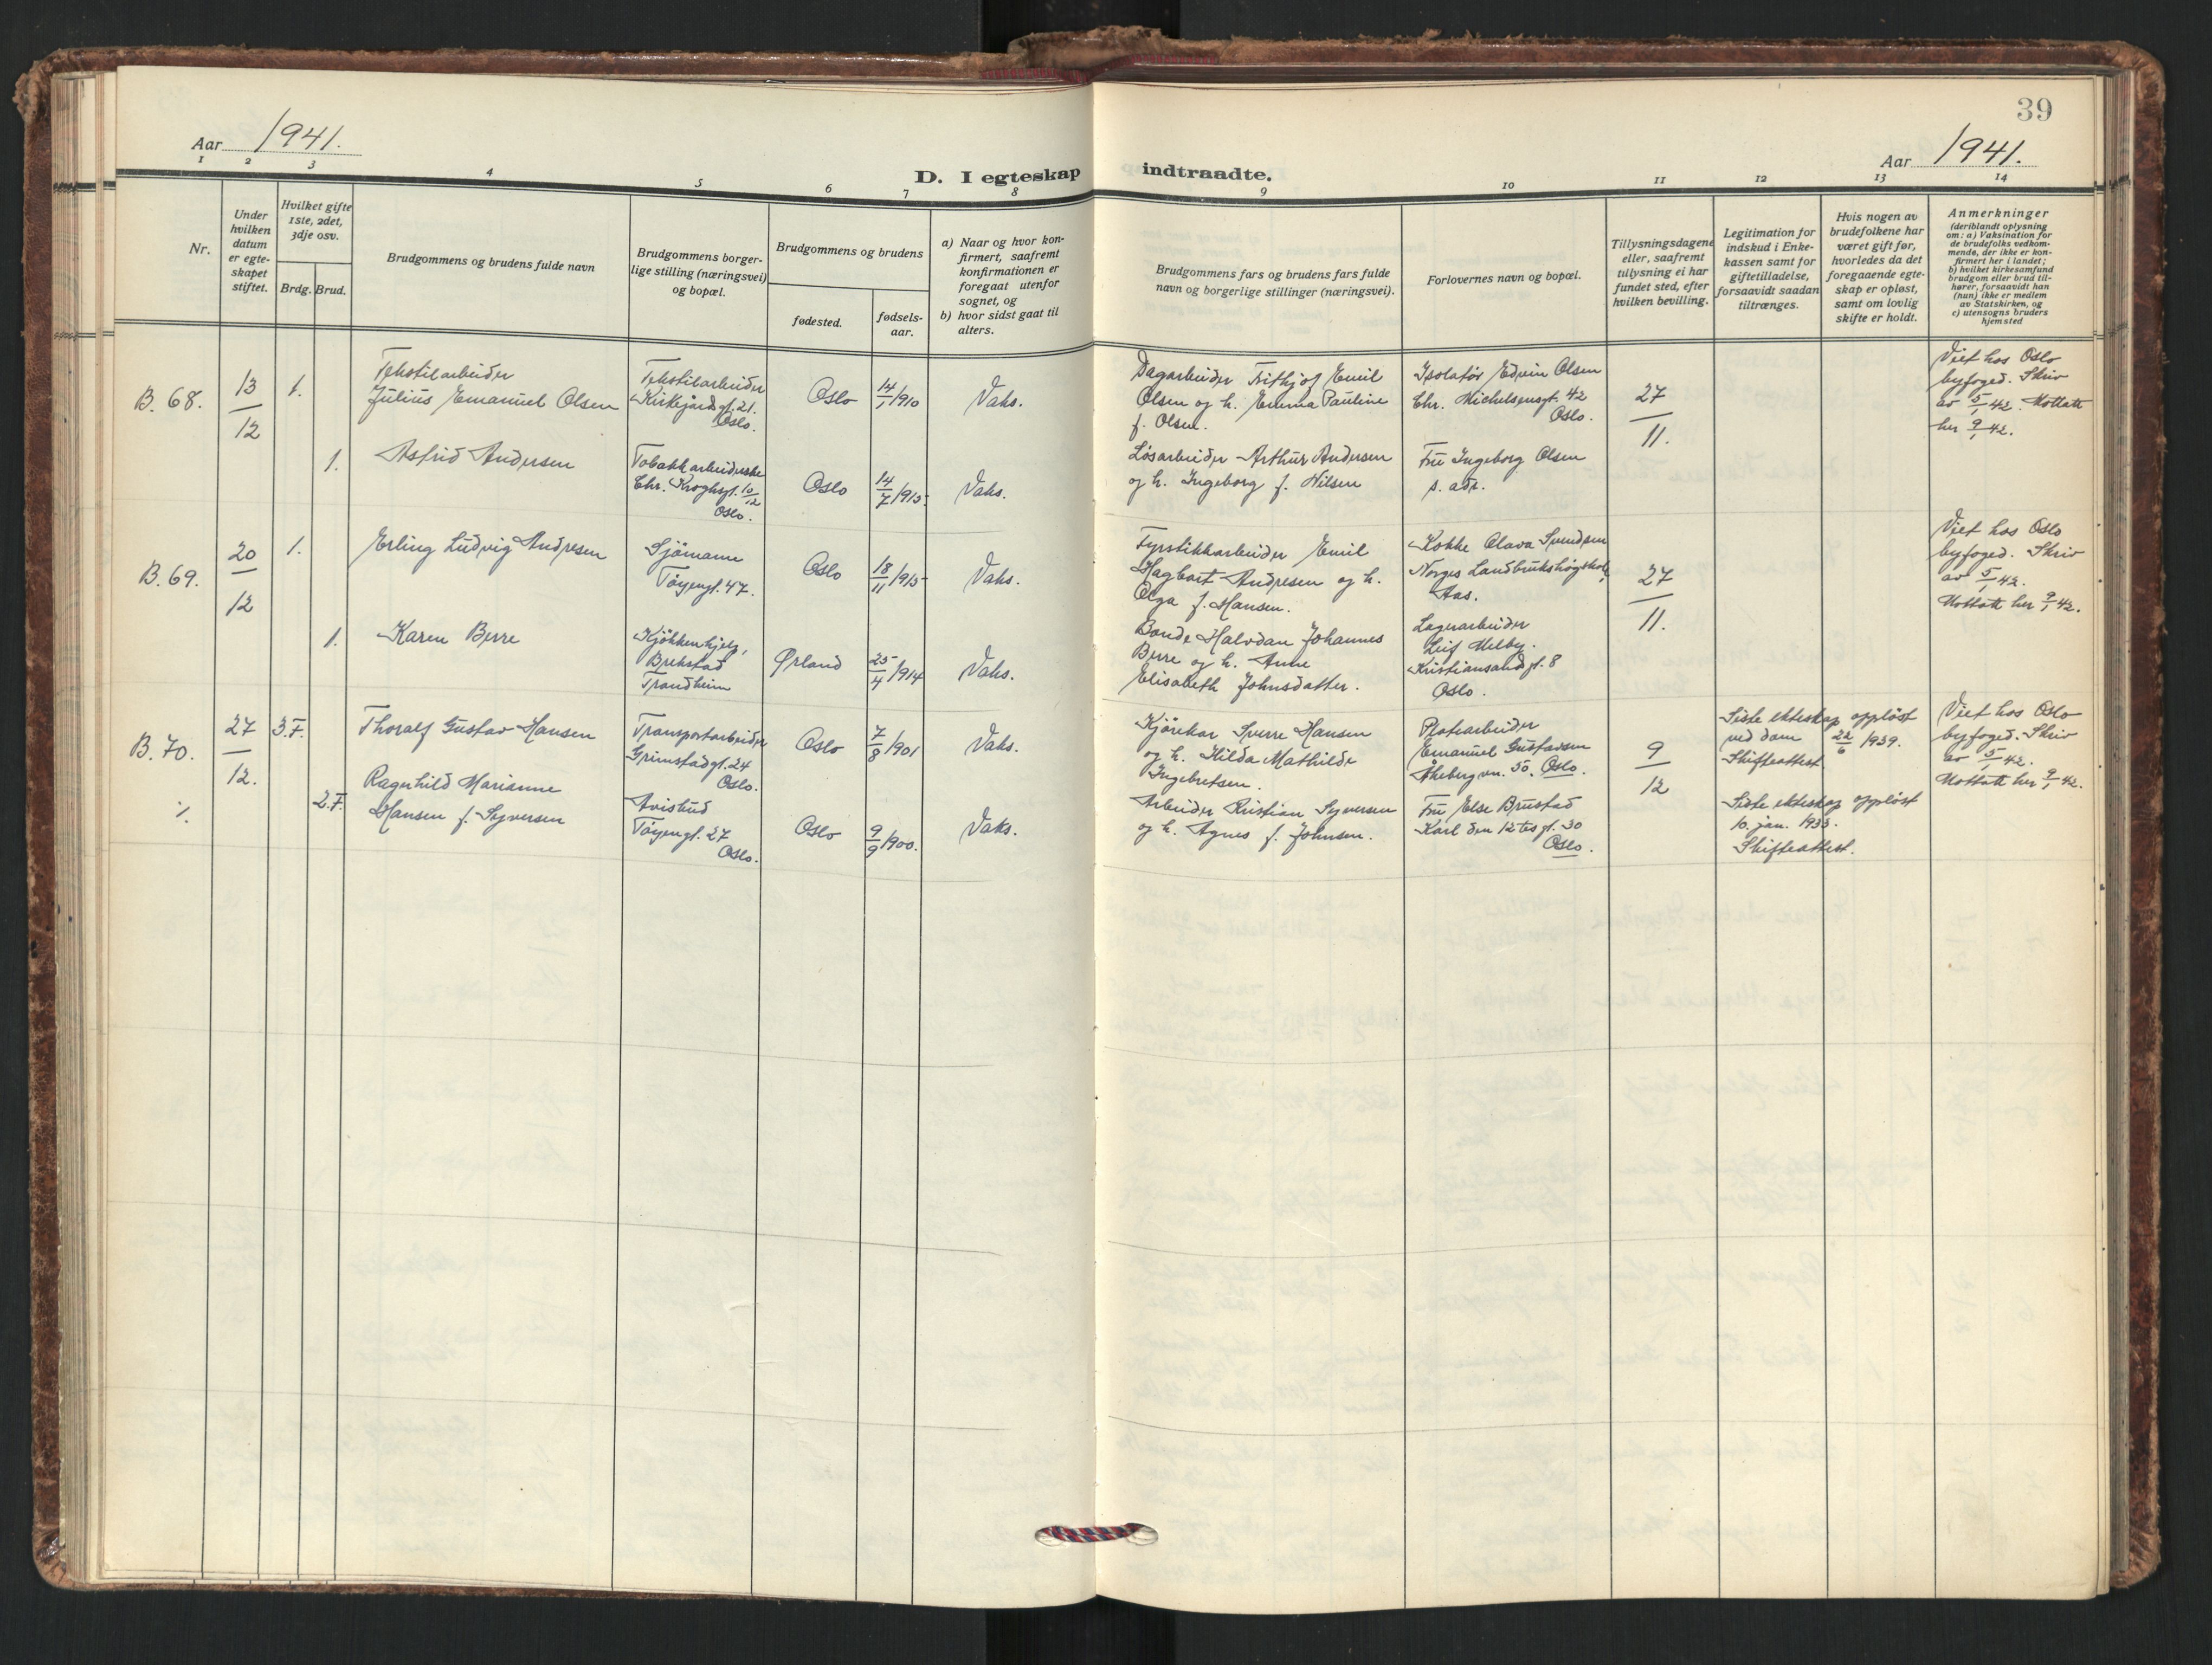 39
Aar 1941.
D. I egteskap indtraadte.
Aar 1941.
1 2 3 4 5 6 7 8 9 10 11 12 13 14
Nr.
Under
hvilken
datum
er egte-
skapet
stiftet.
Hvilket gifte
1ste, 2det,
3dje osv.
Brdg. Brud.
Brudgommens og brudens fulde navn
Brudgommens borger-
lige stilling (næringsvei)
og bopæl.
Brudgommens og brudens
fødested.
fødsels-
aar.
a) Naar og hvor kon-
firmert, saafremt
konfirmationen er
foregaat utenfor
sognet, og
b) hvor sidst gaat til
alters.
Brudgommens fars og brudens fars fulde
navn og borgerlige stillinger (næringsvei).
Forlovernes navn og bopæl.
Tillysningsdagene
eller, saafremt
tillysning ei har
fundet sted, efter
hvilken bevilling.
Legitimation for
indskud i Enke-
kassen samt for
giftetilladelse,
forsaavidt saadan
tiltrænges.
Hvis nogen av
brudefolkene har
været gift før,
hvorledes da det
foregaaende egte-
skap er opløst,
samt om lovlig
skifte er holdt.
Anmerkninger
(deriblandt oplysning
om: a) Vaksination for
de brudefolks vedkom-
mende, der ikke er kon-
firmert her i landet;
b) hvilket kirkesamfund
brudgom eller brud til-
hører, forsaavidt han
(hun) ikke er medlem
av Statskirken, og
c) utensogns bruders
hjemsted
B. 68.
13/12
1.
Tekstilarbeider
Julius Emanuel Olsen
Tekstilarbeider
Kirkegårdsgt. 21.
Oslo.
Oslo
14/1 1910
Vaks.
Dagarbeider Frithjof Emil
Olsen og h. Emma Pauline
f. Olsen.
Isolatør Edvin Olsen
Chr. Michelsensgt. 42
Oslo.
27/11.
Viet hos Oslo
byfoged. Skriv
av 5/1 42. Mottatt
her 9/1 42.
1.
Astrid Andersen
Tobakkarbeiderske
Chr. Kroghsgt. 10/12
Oslo.
Oslo
14/7 1915.
Vaks.
Løsarbeider Arthur Andersen
og h. Ingeborg f. Nilsen
Fru Ingeborg Olsen
s. adr.
B. 69.
20/12
1.
Erling Ludvig Andresen
Sjömann
Töyengt. 47.
Oslo
18/11 1915
Vaks.
Fyrstikkarbeider Emil
Hagbart Andresen og h.
Olga f. Hansen.
Kokke Olava Svendsen
Norges Landbrukshögskole,
Aas.
27/11.
Viet hos Oslo
byfoged. Skriv
av 5/1 42.
Mottatt her 9/1 42.
1.
Karen Berre
Kjökkenhjelp,
Brekstad
Trondheim
Ørland
25/4 1914
Vaks.
Bonde Halvdan Johannes
Berre og h. Anne
Elisabeth Johnsdatter.
Lagerarbeider
Leif Melby.
Kristiansandsgt. 8
Oslo.
B. 70.
27/12.
3. F.
Thoralf Gustav Hansen
Transportarbeider
Grimstadgt. 24
Oslo.
Oslo
7/8 1901
Vaks.
Kjörekar Sverre Hansen
og h. Hilda Mathilde
Ingebretsen.
Platearbeider
Emanuel Gustavsen
Åkebergvn. 50. Oslo.
9/12
Siste ekteskap opplöst
ved dom 22/6 1939.
Skifteattest.
Viet hos Oslo
byfoged. Skriv
av 5/1 42.
Mottatt her 9/1 42.
%
2. F.
Ragnhild Marianne
Hansen f. Syversen
Avisbud
Töyengt. 27
Oslo.
Oslo
9/9 1900.
Vaks.
Arbeider Kristian Syversen
og h. Agnes f. Johnsen.
Fru Else Brustad
Karl den 12tesgt. 30
Oslo.
Siste ekteskap opplöst
10. jan. 1933.
Skifteattest.